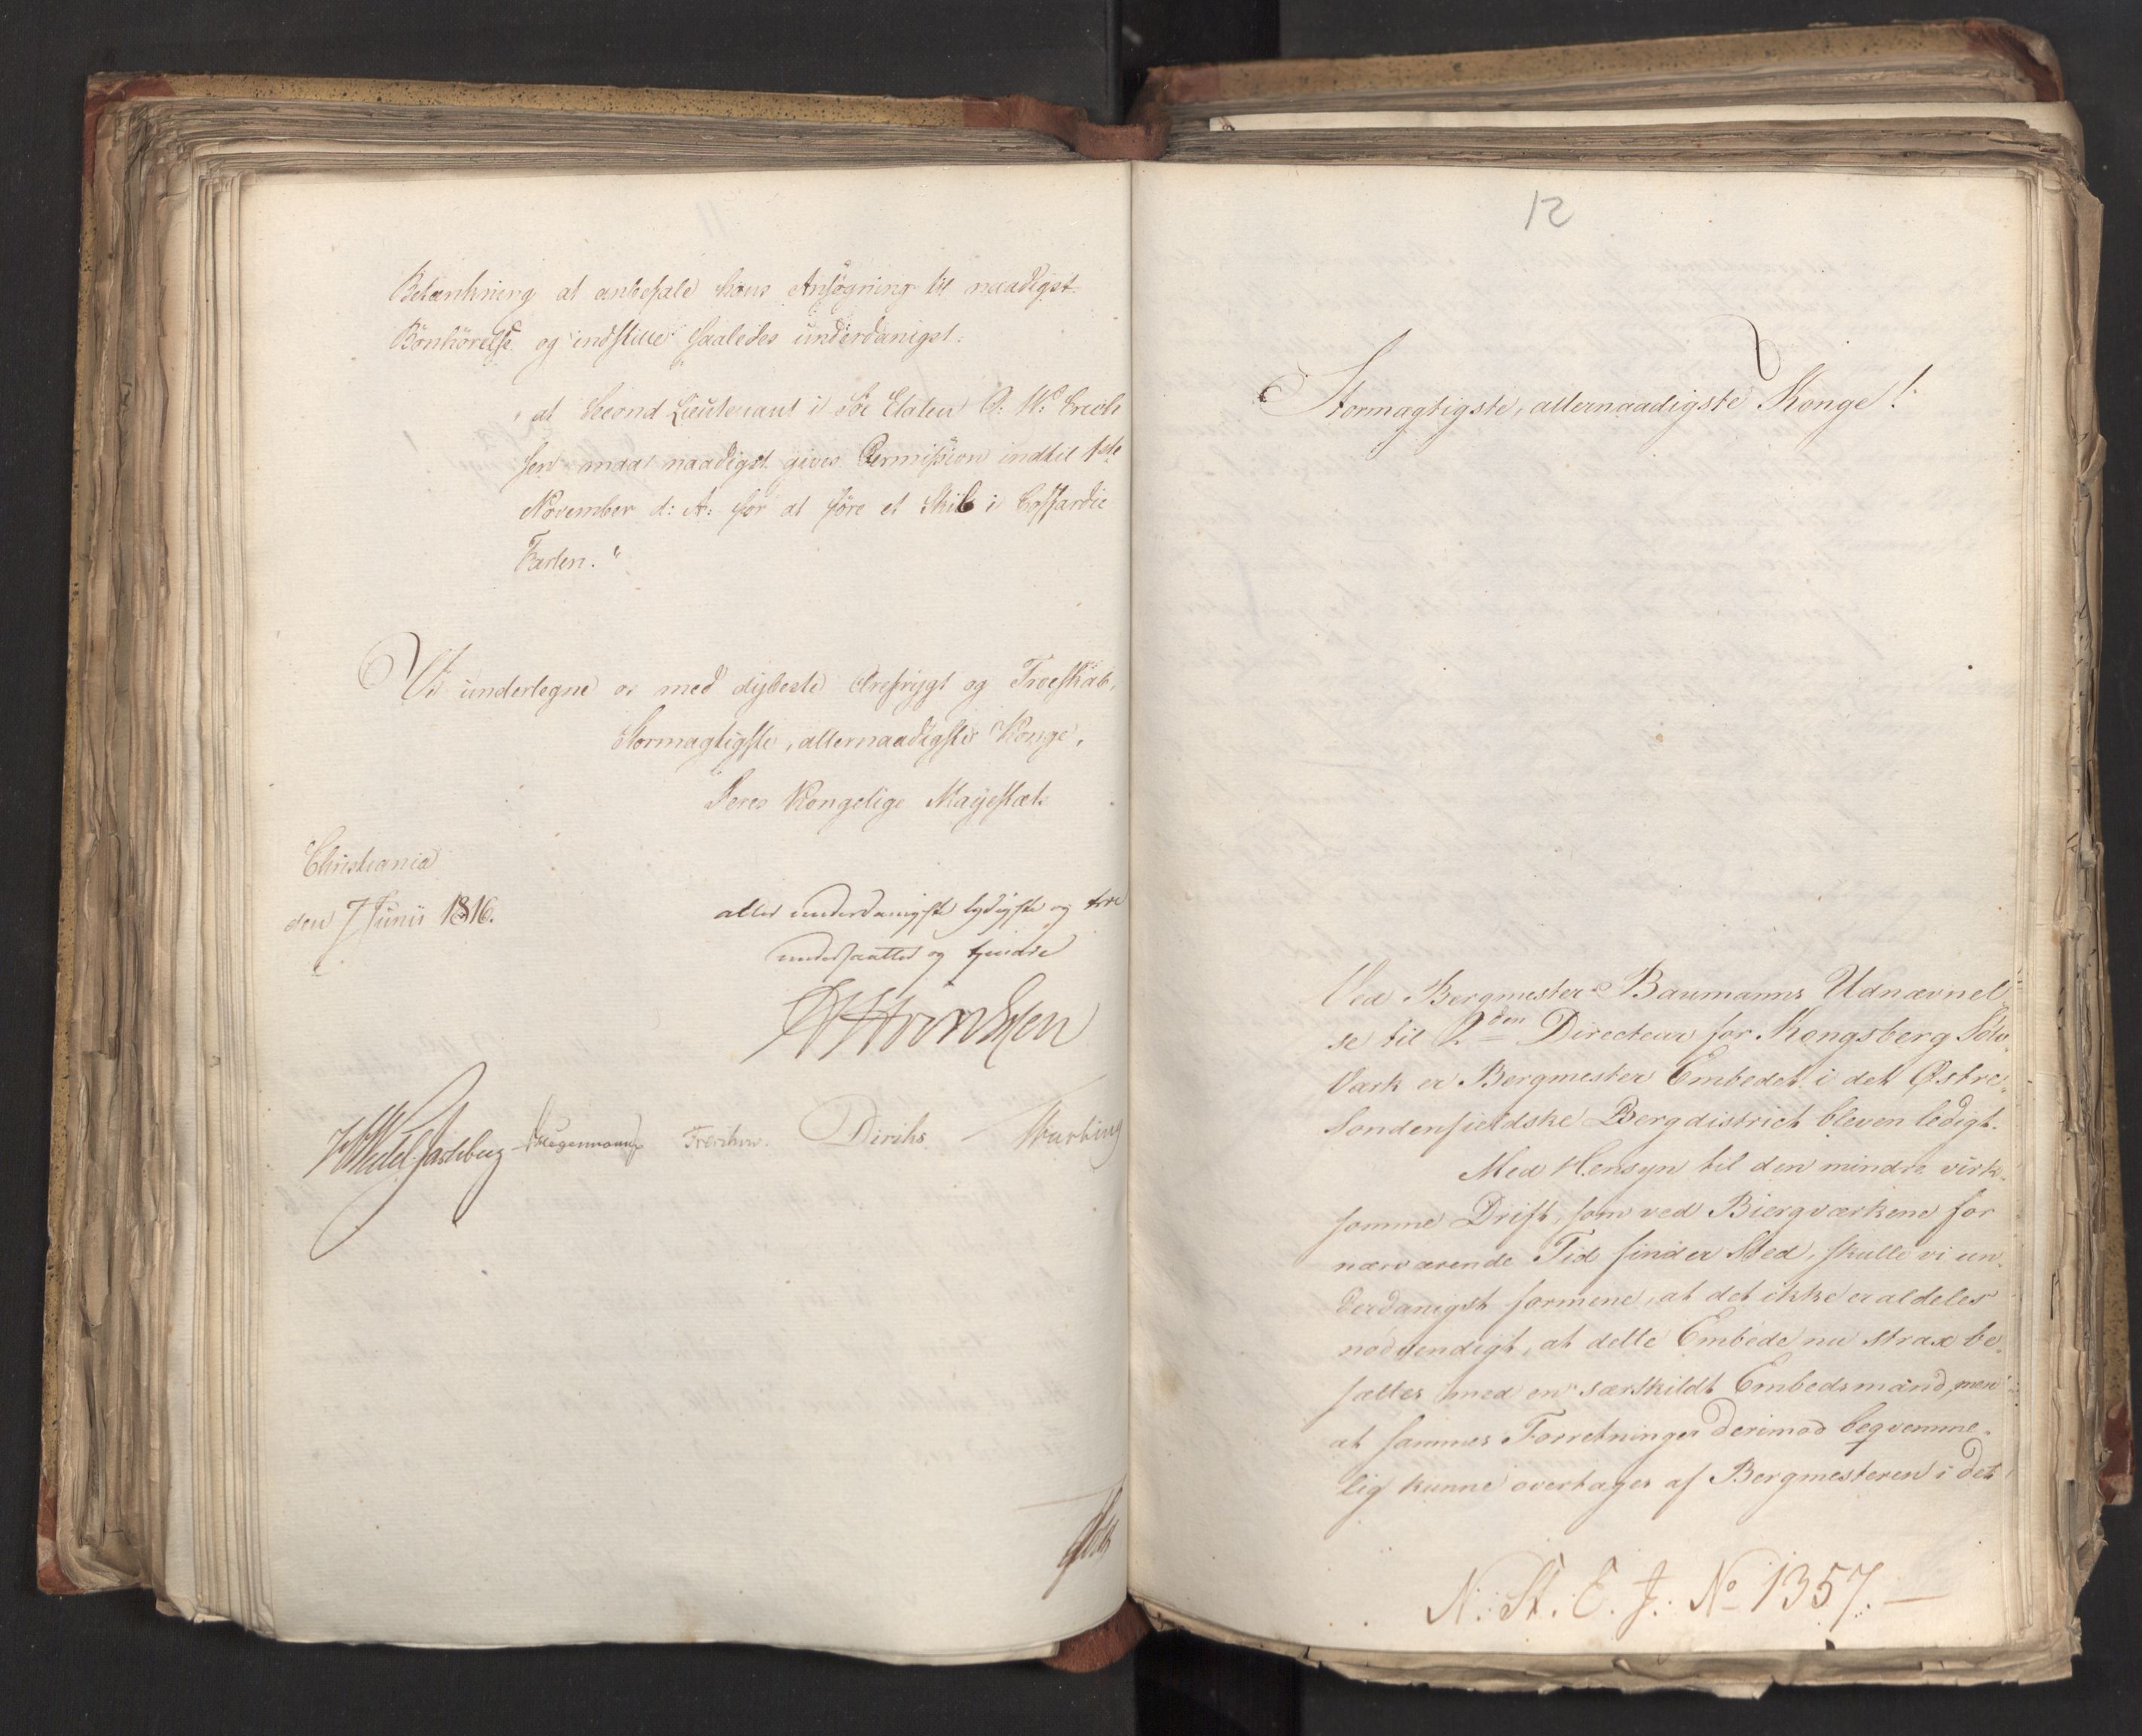 Betænkning at anbefale hans Ansøgning til naadigst
Bønhørelse og indstille saaledes underdanigst:
"at Second Lieutenant i Søe Etaten P: W: Erich
sen maa naadigst gives Permission indtil 1ste
November d: A: for at føre et Skib i Coffardie
Farten."
Vi underlegne os med dybeste Ærefrygt og Troeskab,
Stormægtigste, allernaadigste Konge,
Deres Kongelige Majestæts
Christiania
den 7 Junii 1816.
aller underdanigste lydigste og troe
undersaatter og tjenere
Wedel Jarlsberg Hegermann Diriks
12
Stormægtigste, allernaadigste Konge!
Ved Bergmester Baumanns Udnævnel
se til 2den Directeur for Kongsberg Sølv
Værk er Bergmester Embedet i det Østre
Søndenfieldske Bergdistrict bleven ledigt.
Med Hensyn til den mindre virk
somme Drift, som ved Biergværkene for
nærværende Tid finder Sted, skulle vi un
derdanigst formene, at det ikke er aldeles
nødvendigt, at dette Embede nu strax be
sættes med en særskildt Embedsmand, men
at sammes Forretninger derimod beqvemme
lig kunne overtages af Bergmesteren i det
N. St. E. J. No 1357.